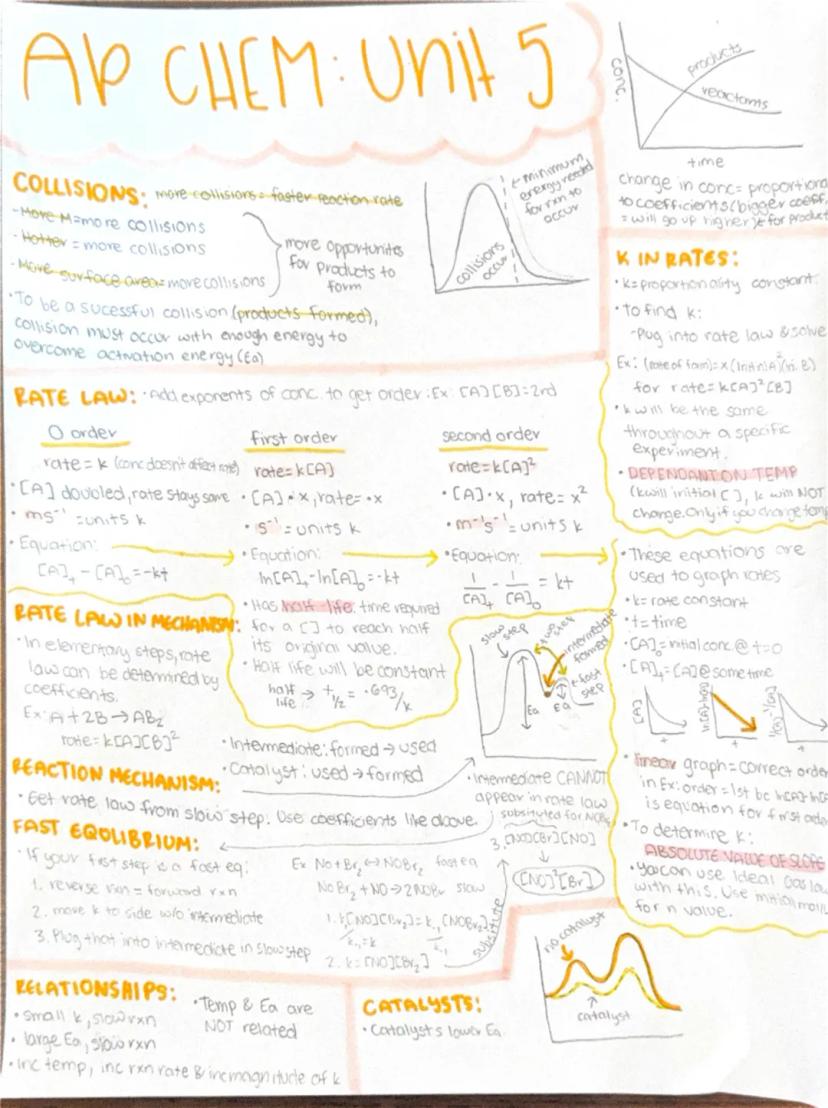 AP CHEM: Unit 5
COLLISIONS: more collisions = faster reaction rate
- More M = more collisions
- Hotter = more collisions
- More surface area = more collisions
more opportunites
for products to
form
• To be a sucessful collision (products formed),
collision must occur with enough energy to
overcome activation energy (Ea)
collisions
occur
minimum
energy needed
for rxn to
occur
conc.
products
reactants
time
change in conc = proportional
to coefficients (bigger coeff.
= will go up higher for product
K IN RATES:
• k = proportionality constant.
• To find k:
- Plug into rate law & solve
for rate = k[A]²[B]
• k will be the same
throughout a specific
experiment.
• DEPENDANT ON TEMP
(k will initial [ ], k will NOT
change. Only if you change temp
RATE LAW: • Add exponents of conc. to get order: Ex: [A][B] = 2nd
0 order
rate = k (conc doesn't affect rate)
• [A] doubled, rate stays same
• ms⁻¹ = units k
• Equation:
[A]t - [A]0 = -kt
first order
rate = k[A]
• [A] • x, rate = • x
• s⁻¹ = units k
• Equation:
ln[A]t - ln[A]0 = -kt
• Has half life: time required
for a [ ] to reach half
its original value.
• Half life will be constant
half
life → t½ = .693/k
second order
rate = k[A]²
• [A] • x, rate = x²
• m⁻¹s⁻¹ = units k
• Equation:
1/[A]t - 1/[A]0 = kt
• These equations are
used to graph rates
• k = rate constant
• t = time
• [A]0 = initial conc @ t = 0
• [A]t = [A] @ some time
[A]
t
ln[A]
t
1/[A]
t
• linear graph = correct order
in Ex: order = 1st bc
is equation for first order
• To determine k:
ABSOLUTE VALUE OF SLOPE
• You can use Ideal Gas law
with this. Use initial
for n value.
RATE LAW IN MECHANISM:
• In elementary steps, rate
law can be determined by
coefficients.
Ex: A + 2B → AB2
rate = k[A][B]²
slow
step
intermediate
formed
fast
step
Ea
Ea
• Intermediate: formed → used
• Catalyst: used → formed
REACTION MECHANISM:
• Get rate law from slow step. Use coefficients like above
• Intermediate CANNOT
appear in rate law
substituted for NOBr2
3. [NO][Br][NO]
[NO]²[Br]
FAST EQULIBRIUM:
• If your first step is a fast eq:
1. reverse rxn = forward rxn
2. move k to side w/o intermediate
3. Plug that into intermediate in slow step
Ex No + Br2 ↔ NOBr2 fast eq
NoBr2 + NO → 2NOBr slow
1. k1[NO][Br2] = k-1[NOBr2]
k-1 = k
k-1
2. k = [NO][Br2]
substitute
RELATIONSHIPS:
• small k, slow rxn
• large Ea, slow rxn
• Inc temp, inc rxn rate & inc magnitude of k
• Temp & Ea are
NOT related
CATALYSTS:
• Catalysts lower Ea
no catalyst
catalyst